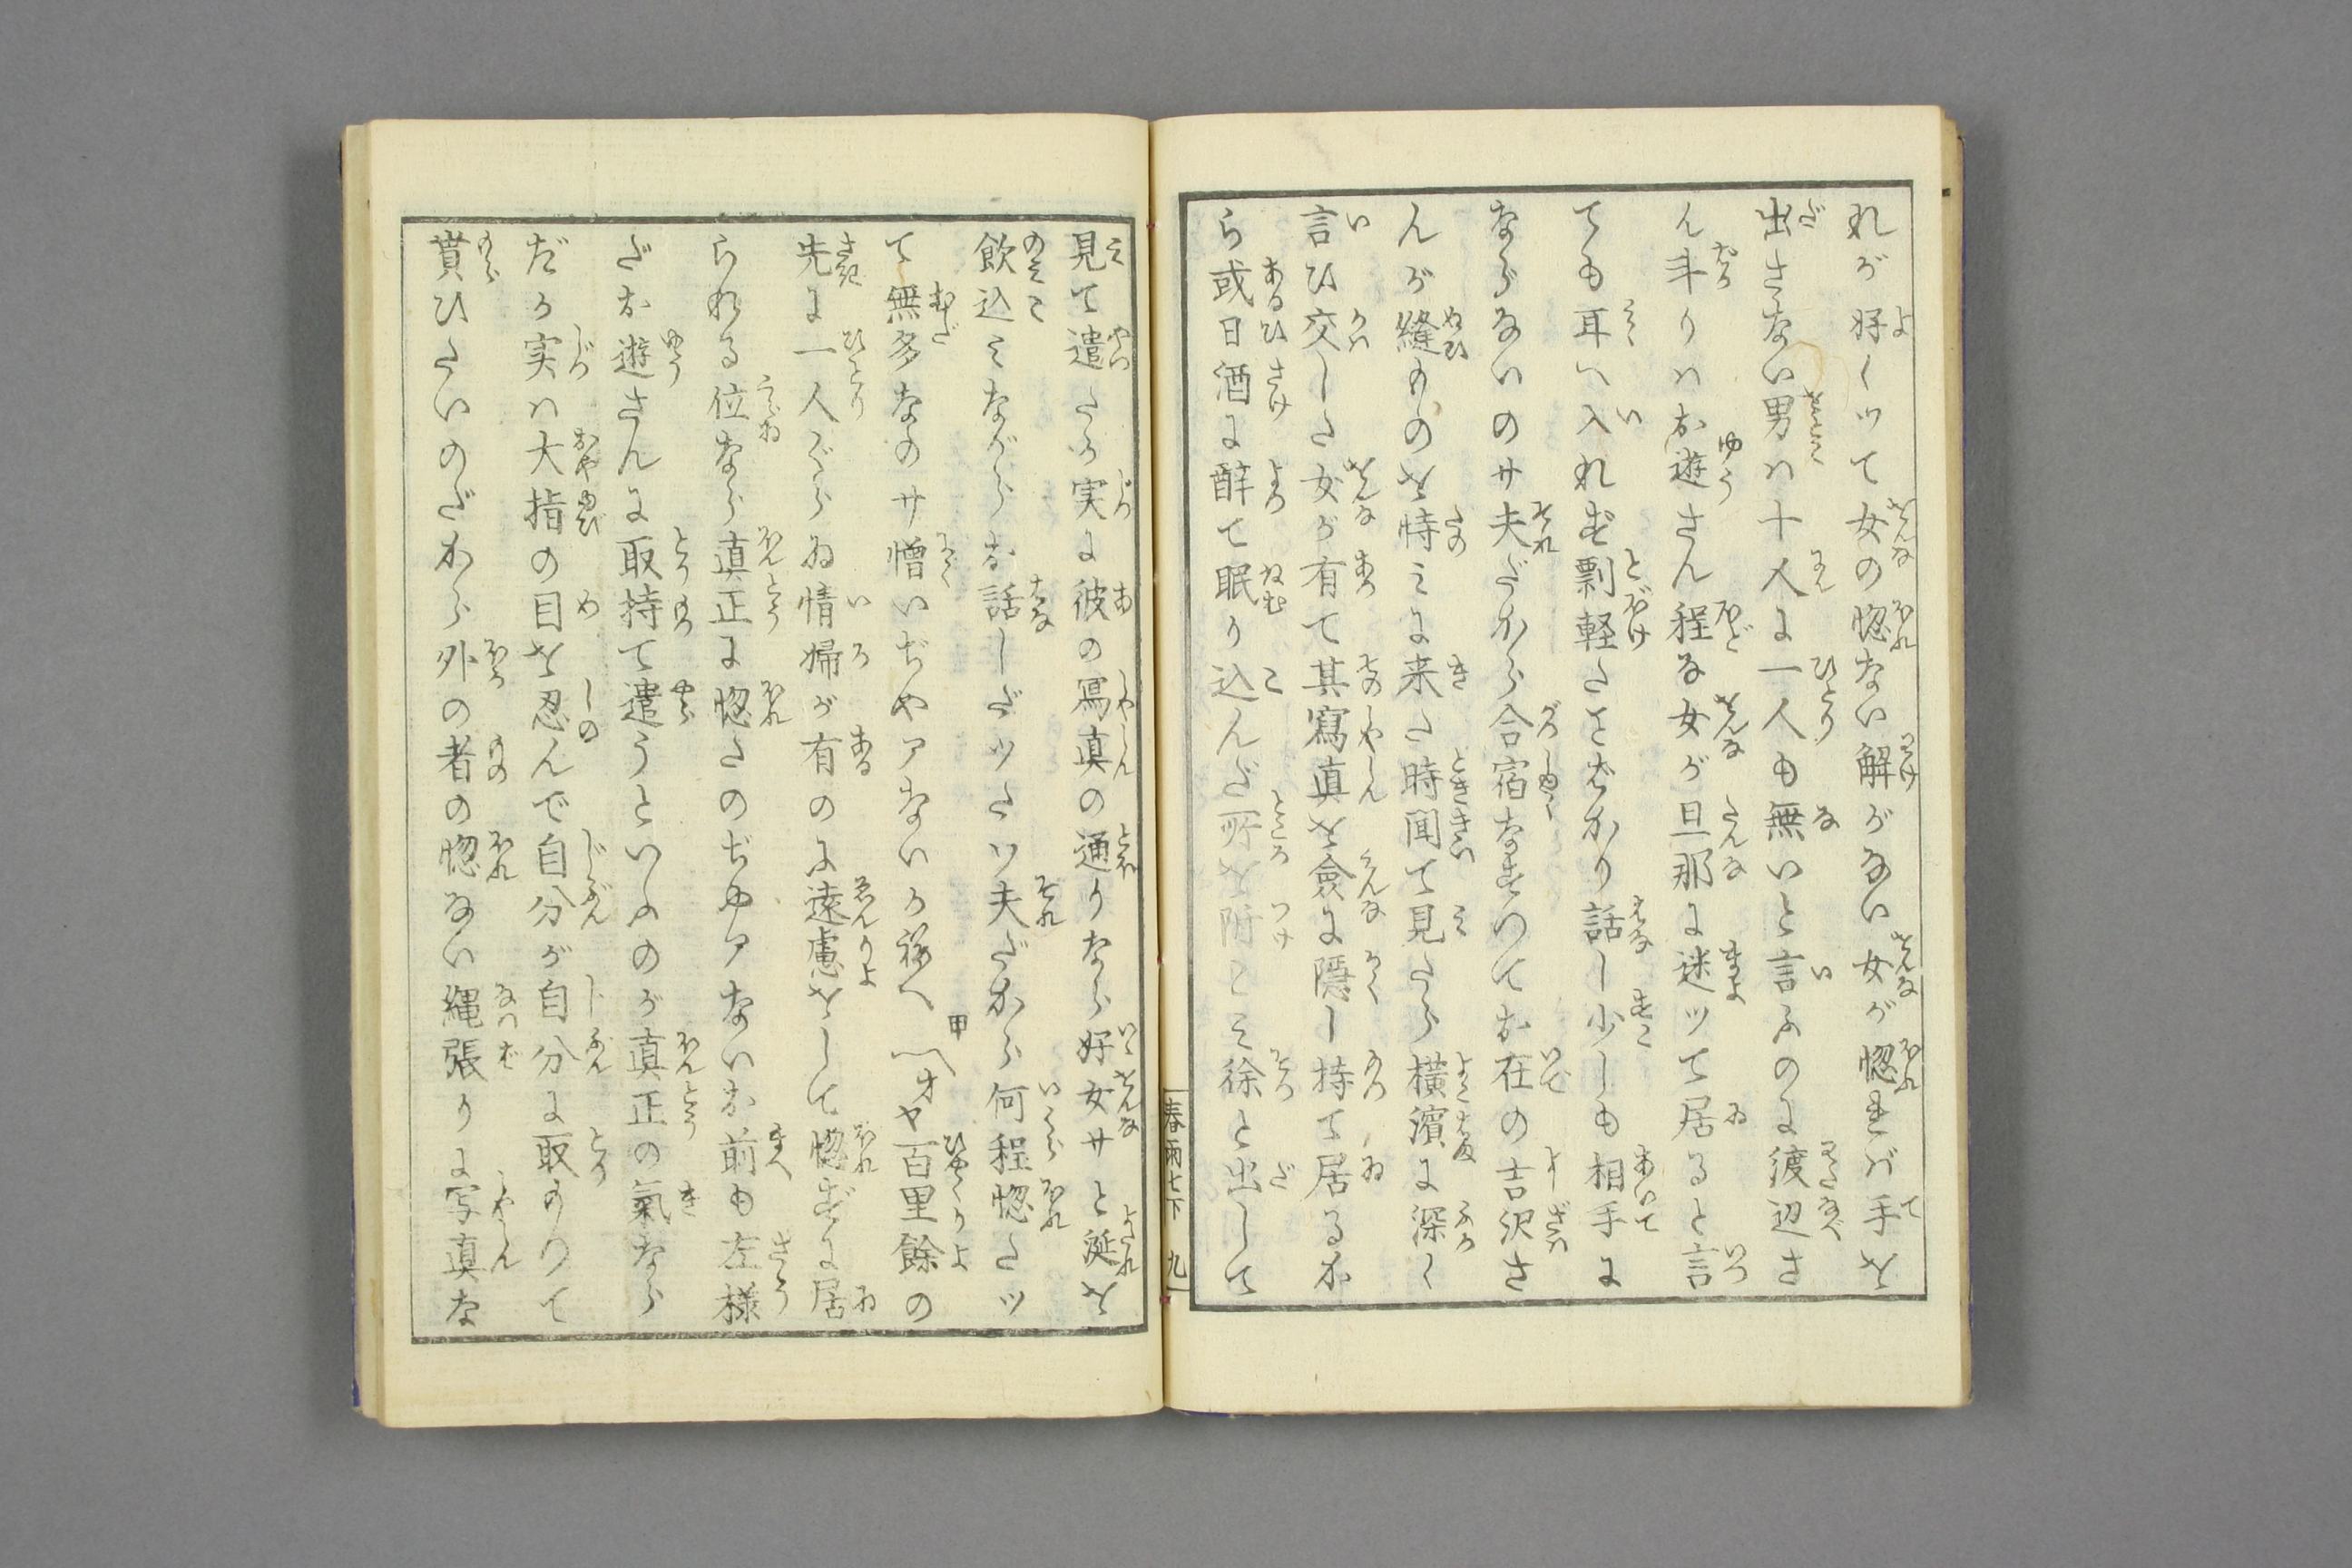 れが好くッて女の惚ない解がない女が惚れバ手を
出さない男ハ十人に一人も無いと言ふのに渡辺さ
ん斗りハお遊さん程な女が旦那に迷ッて居ると言
ても耳へ入れず剽軽たことばかり話し少しも相手に
ならないのサ夫だから合宿なすつてお在の吉沢さ
んが縫ものを恃みに来た時聞て見たら横濱に深く
言ひ交した女が有て其寫真を僉に隠し持て居るか
ら或日酒に酔て眠り込んだ所を附こみ徐と出して
春雨七下 九
見て遣たが実に彼の寫真の通りなら好女サと涎を
飲込みながらお話しだッたツ夫だから何程惚たッ
て無多なのサ憎いぢやアないか 甲〽オヤ百里餘の
先に一人ぐらゐ情婦が有のに遠慮をして惚ずに居
られる位なら真正に惚たのぢやアないお前も左様
だお遊さんに取持て遣うといふのが真正の氣なら
だが実ハ大指の目を忍んで自分が自分に取もつて
貰ひたいのだから外の者の惚ない縄張りに写真な